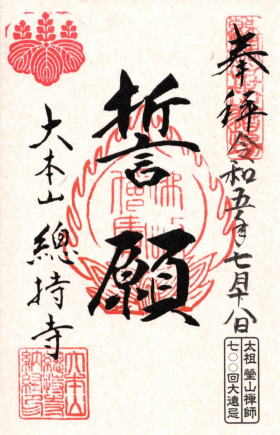 奉拝 令和五年七月十八日
太祖 瑩山禅師
七〇〇回大遠忌
誓願
大本山 總持寺
大本山
總持寺
納経印